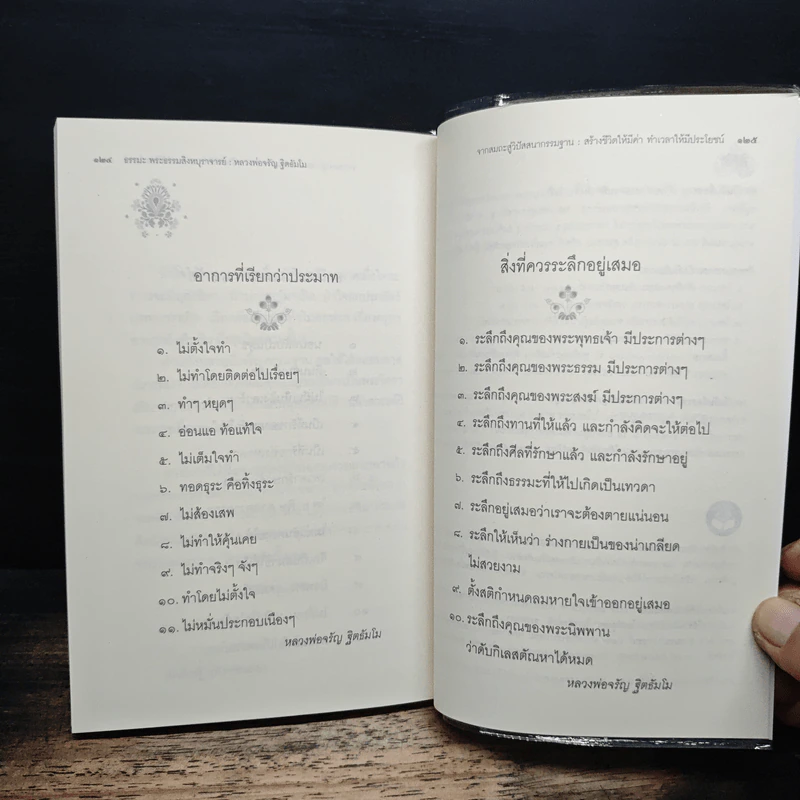 ๑๒๔ ธรรมะ พระธรรมสิงหบุราจารย์ : หลวงพ่อจรัญ ฐิตธัมโม
อาการที่เรียกว่าประมาท
๑. ไม่ตั้งใจทำ
๒. ไม่ทำโดยติดต่อไปเรื่อยๆ
๓. ทำๆ หยุดๆ
๔. อ่อนแอ ท้อแท้ใจ
๕. ไม่เต็มใจทำ
๖. ทอดธุระ คือทิ้งธุระ
๗. ไม่ส้องเสพ
๘. ไม่ทำให้คุ้นเคย
๙. ไม่ทำจริงๆ จังๆ
๑๐. ทำโดยไม่ตั้งใจ
๑๑. ไม่หมั่นประกอบเนืองๆ
หลวงพ่อจรัญ ฐิตธัมโม
จากสมถะสู่วิปัสสนากรรมฐาน : สร้างชีวิตให้มีค่า ทำเวลาให้มีประโยชน์ ๑๒๕
สิ่งที่ควรระลึกอยู่เสมอ
๑. ระลึกถึงคุณของพระพุทธเจ้า มีประการต่างๆ
๒. ระลึกถึงคุณของพระธรรม มีประการต่างๆ
๓. ระลึกถึงคุณของพระสงฆ์ มีประการต่างๆ
๔. ระลึกถึงทานที่ให้แล้ว และกำลังคิดจะให้ต่อไป
๕. ระลึกถึงศีลที่รักษาแล้ว และกำลังรักษาอยู่
๖. ระลึกถึงธรรมะที่ให้ไปเกิดเป็นเทวดา
๗. ระลึกอยู่เสมอว่าเราจะต้องตายแน่นอน
๘. ระลึกให้เห็นว่า ร่างกายเป็นของน่าเกลียด
ไม่สวยงาม
๙. ตั้งสติกำหนดลมหายใจเข้าออกอยู่เสมอ
๑๐. ระลึกถึงคุณของพระนิพพาน
ว่าดับกิเลสตัณหาได้หมด
หลวงพ่อจรัญ ฐิตธัมโม